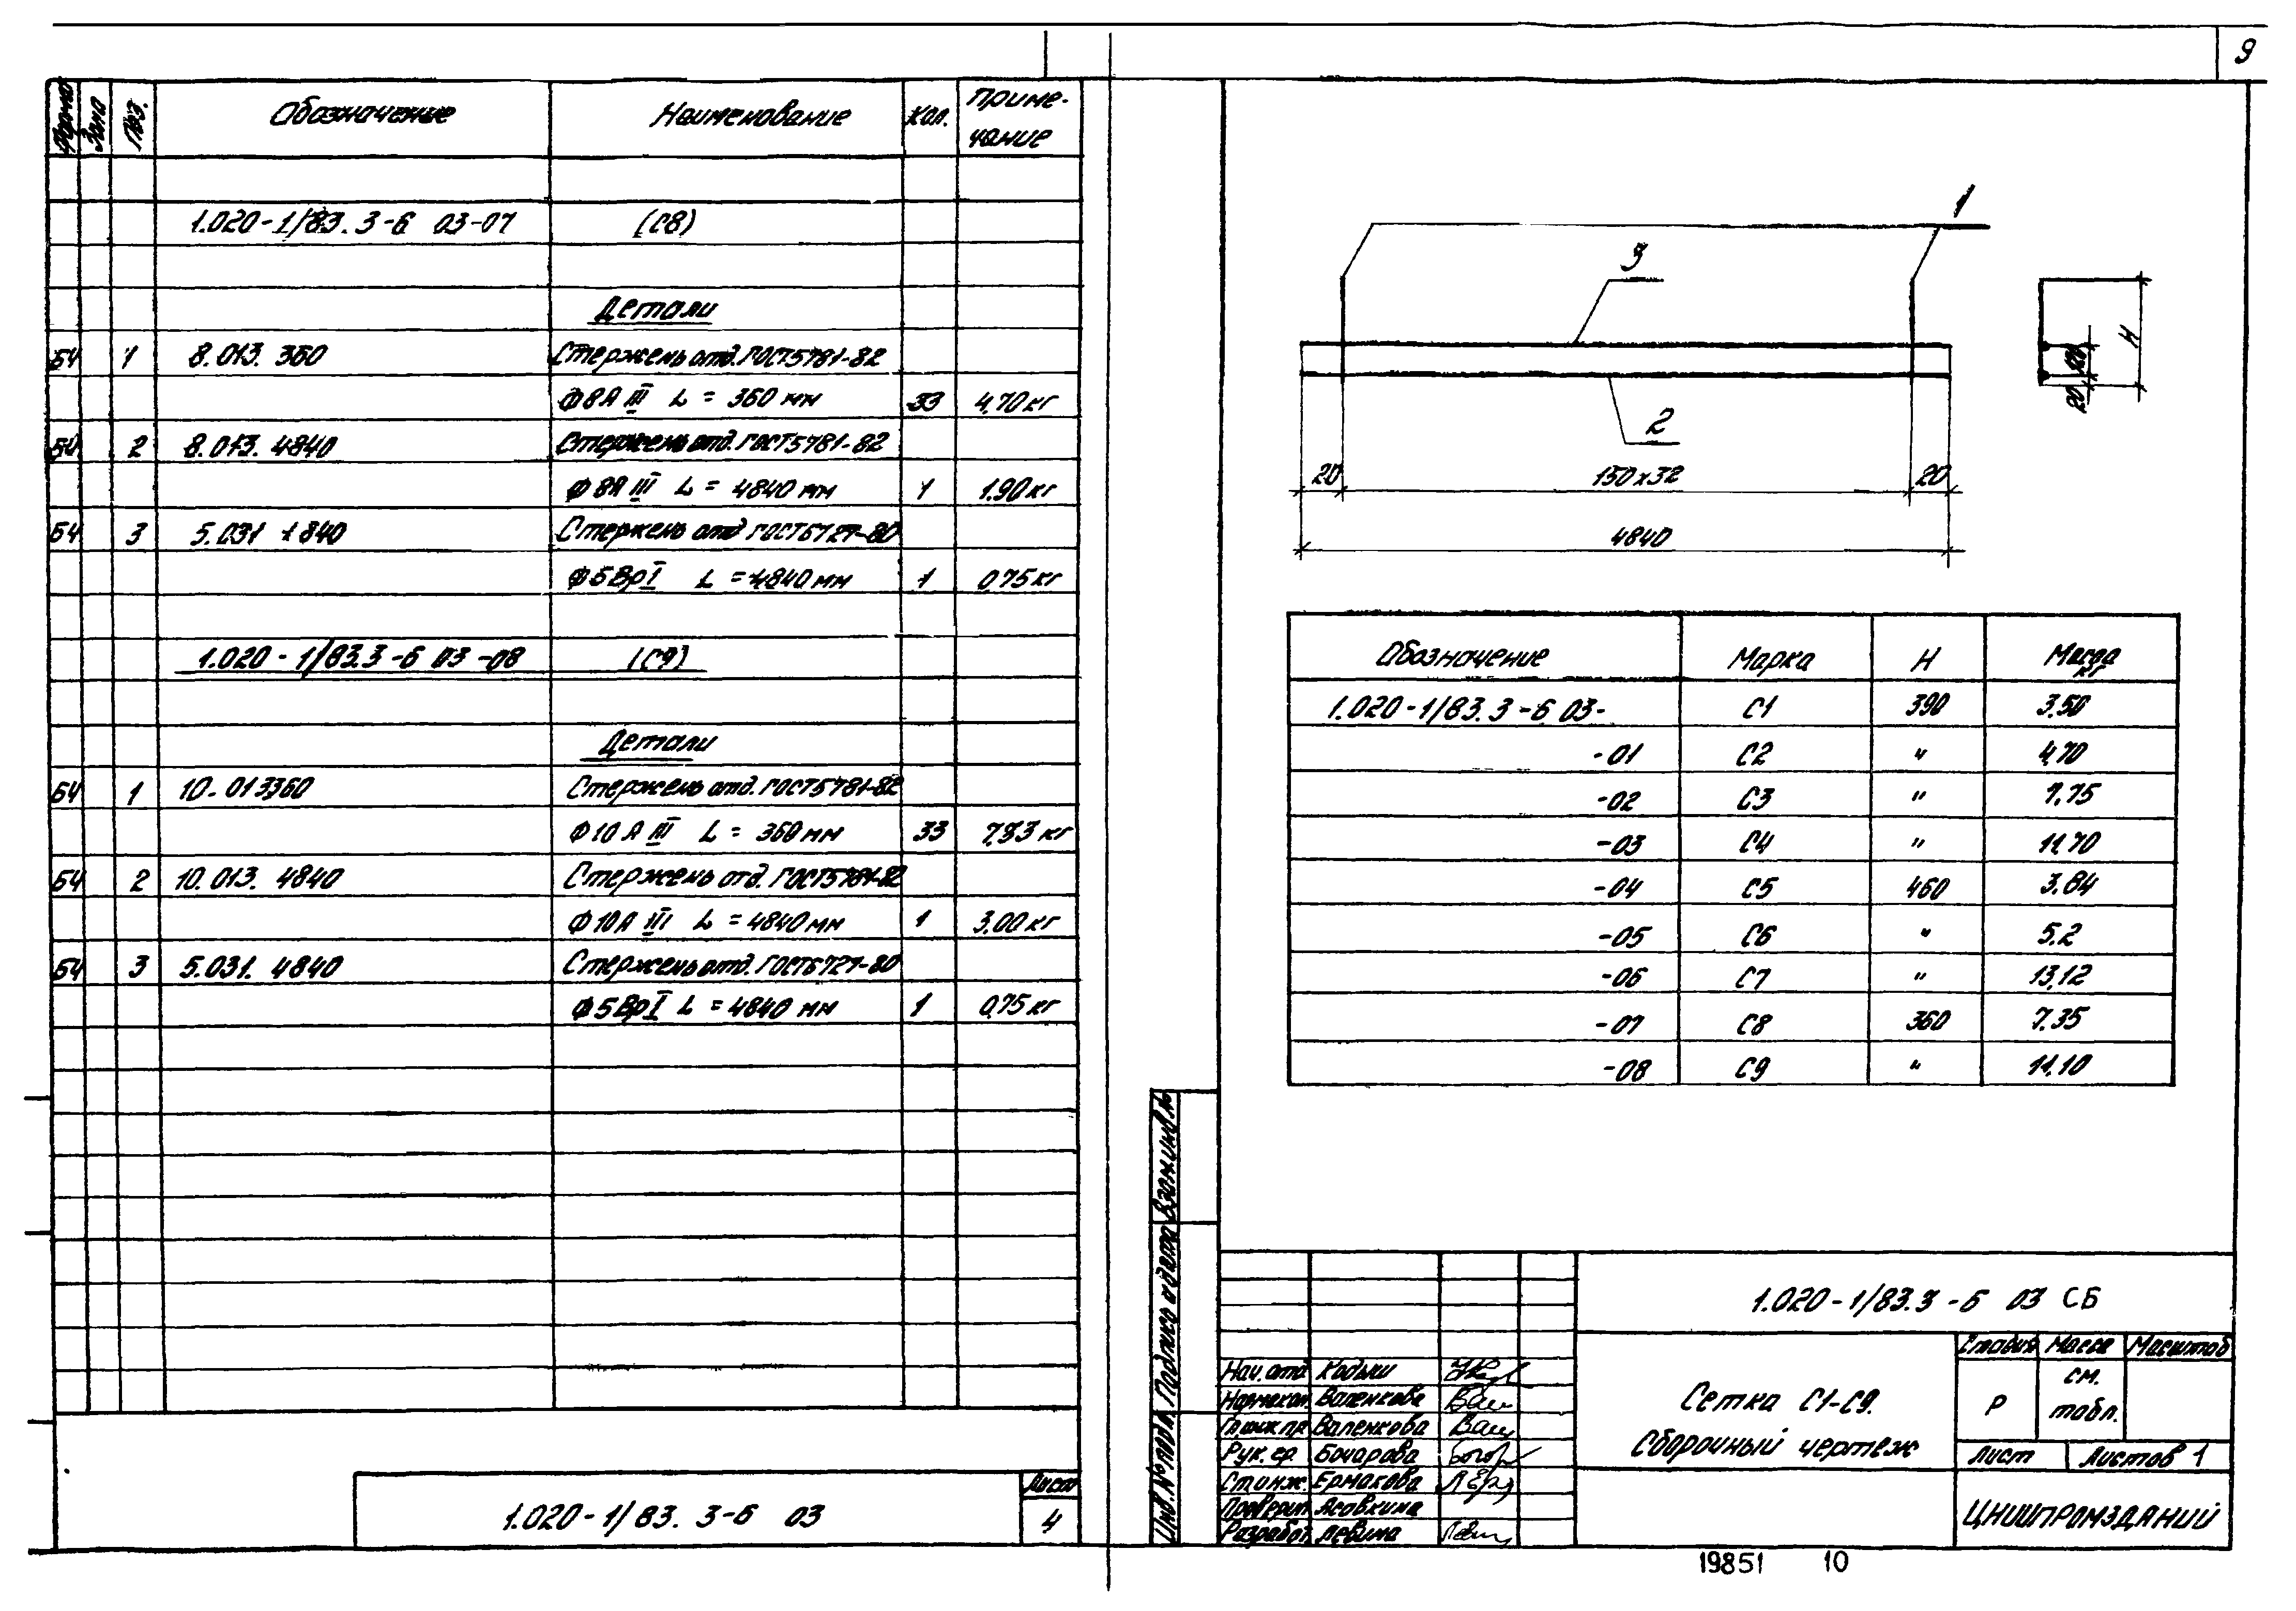 9
Формат Зона Поз. Обозначение Наименование Кол. Приме-
чание
1.020-1/83. 3-6 03-07 (С8)
Детали
БЧ 1 8.013. 360 Стержень отд. ГОСТ5781-82
Ф8АIII L = 360 мм 33 4,70 кг
БЧ 2 8.013. 4840 Стержень отд. ГОСТ5781-82
Ф8АIII L = 4840 мм 1 1.90 кг
БЧ 3 5.031 4840 Стержень отд ГОСТ6727-80
Ф5ВрI L = 4840 мм 1 0,75 кг
1.020-1/83.3-6 03-08 (С9)
Детали
БЧ 1 10.013360 Стержень отд. ГОСТ5781-82
Ф10АIII L = 360 мм 33 7,33 кг
БЧ 2 10.013. 4840 Стержень отд. ГОСТ5781-82
Ф10АIII L = 4840 мм 1 3.00 кг
БЧ 3 5.031. 4840 Стержень отд. ГОСТ6727-80
Ф5ВрI L = 4840 мм 1 0,75 кг
1.020-1/83. 3-6 03
Лист
4
1
3
2
20 150х32 20
4840
Н
20
Обозначение Марка Н Масса
кг
1.020-1/83.3-6 03- С1 390 3,50
-01 С2 " 4,70
-02 С3 " 7,75
-03 С4 " 11,70
-04 С5 460 3.84
-05 С6 " 5,2
-06 С7 " 13,12
-07 С8 360 7.35
-08 С9 " 11.10
Инв.№подл. Подпись и дата Взам.инв.№
1.020-1/83.3-6 03 СБ
Сетка С1-С9.
Сборочный чертеж
Стадия Масса Масштаб
Р см.
табл.
Лист Листов 1
ЦНИИПРОМЗДАНИЙ
Нач.отд Кодыш
Нормокон. Валенкова
Гл.инж.пр. Валенкова
Рук. гр. Бочарова
Ст.инж. Ермакова
Проверил
Разработ. Левина
19851 10